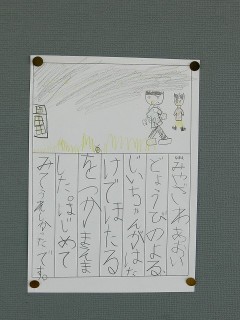 みやざわあおい
どようびのよる
じいちゃんがはた
けでほたる
をつかまえま
した。はじめて
みてうれしかたです。